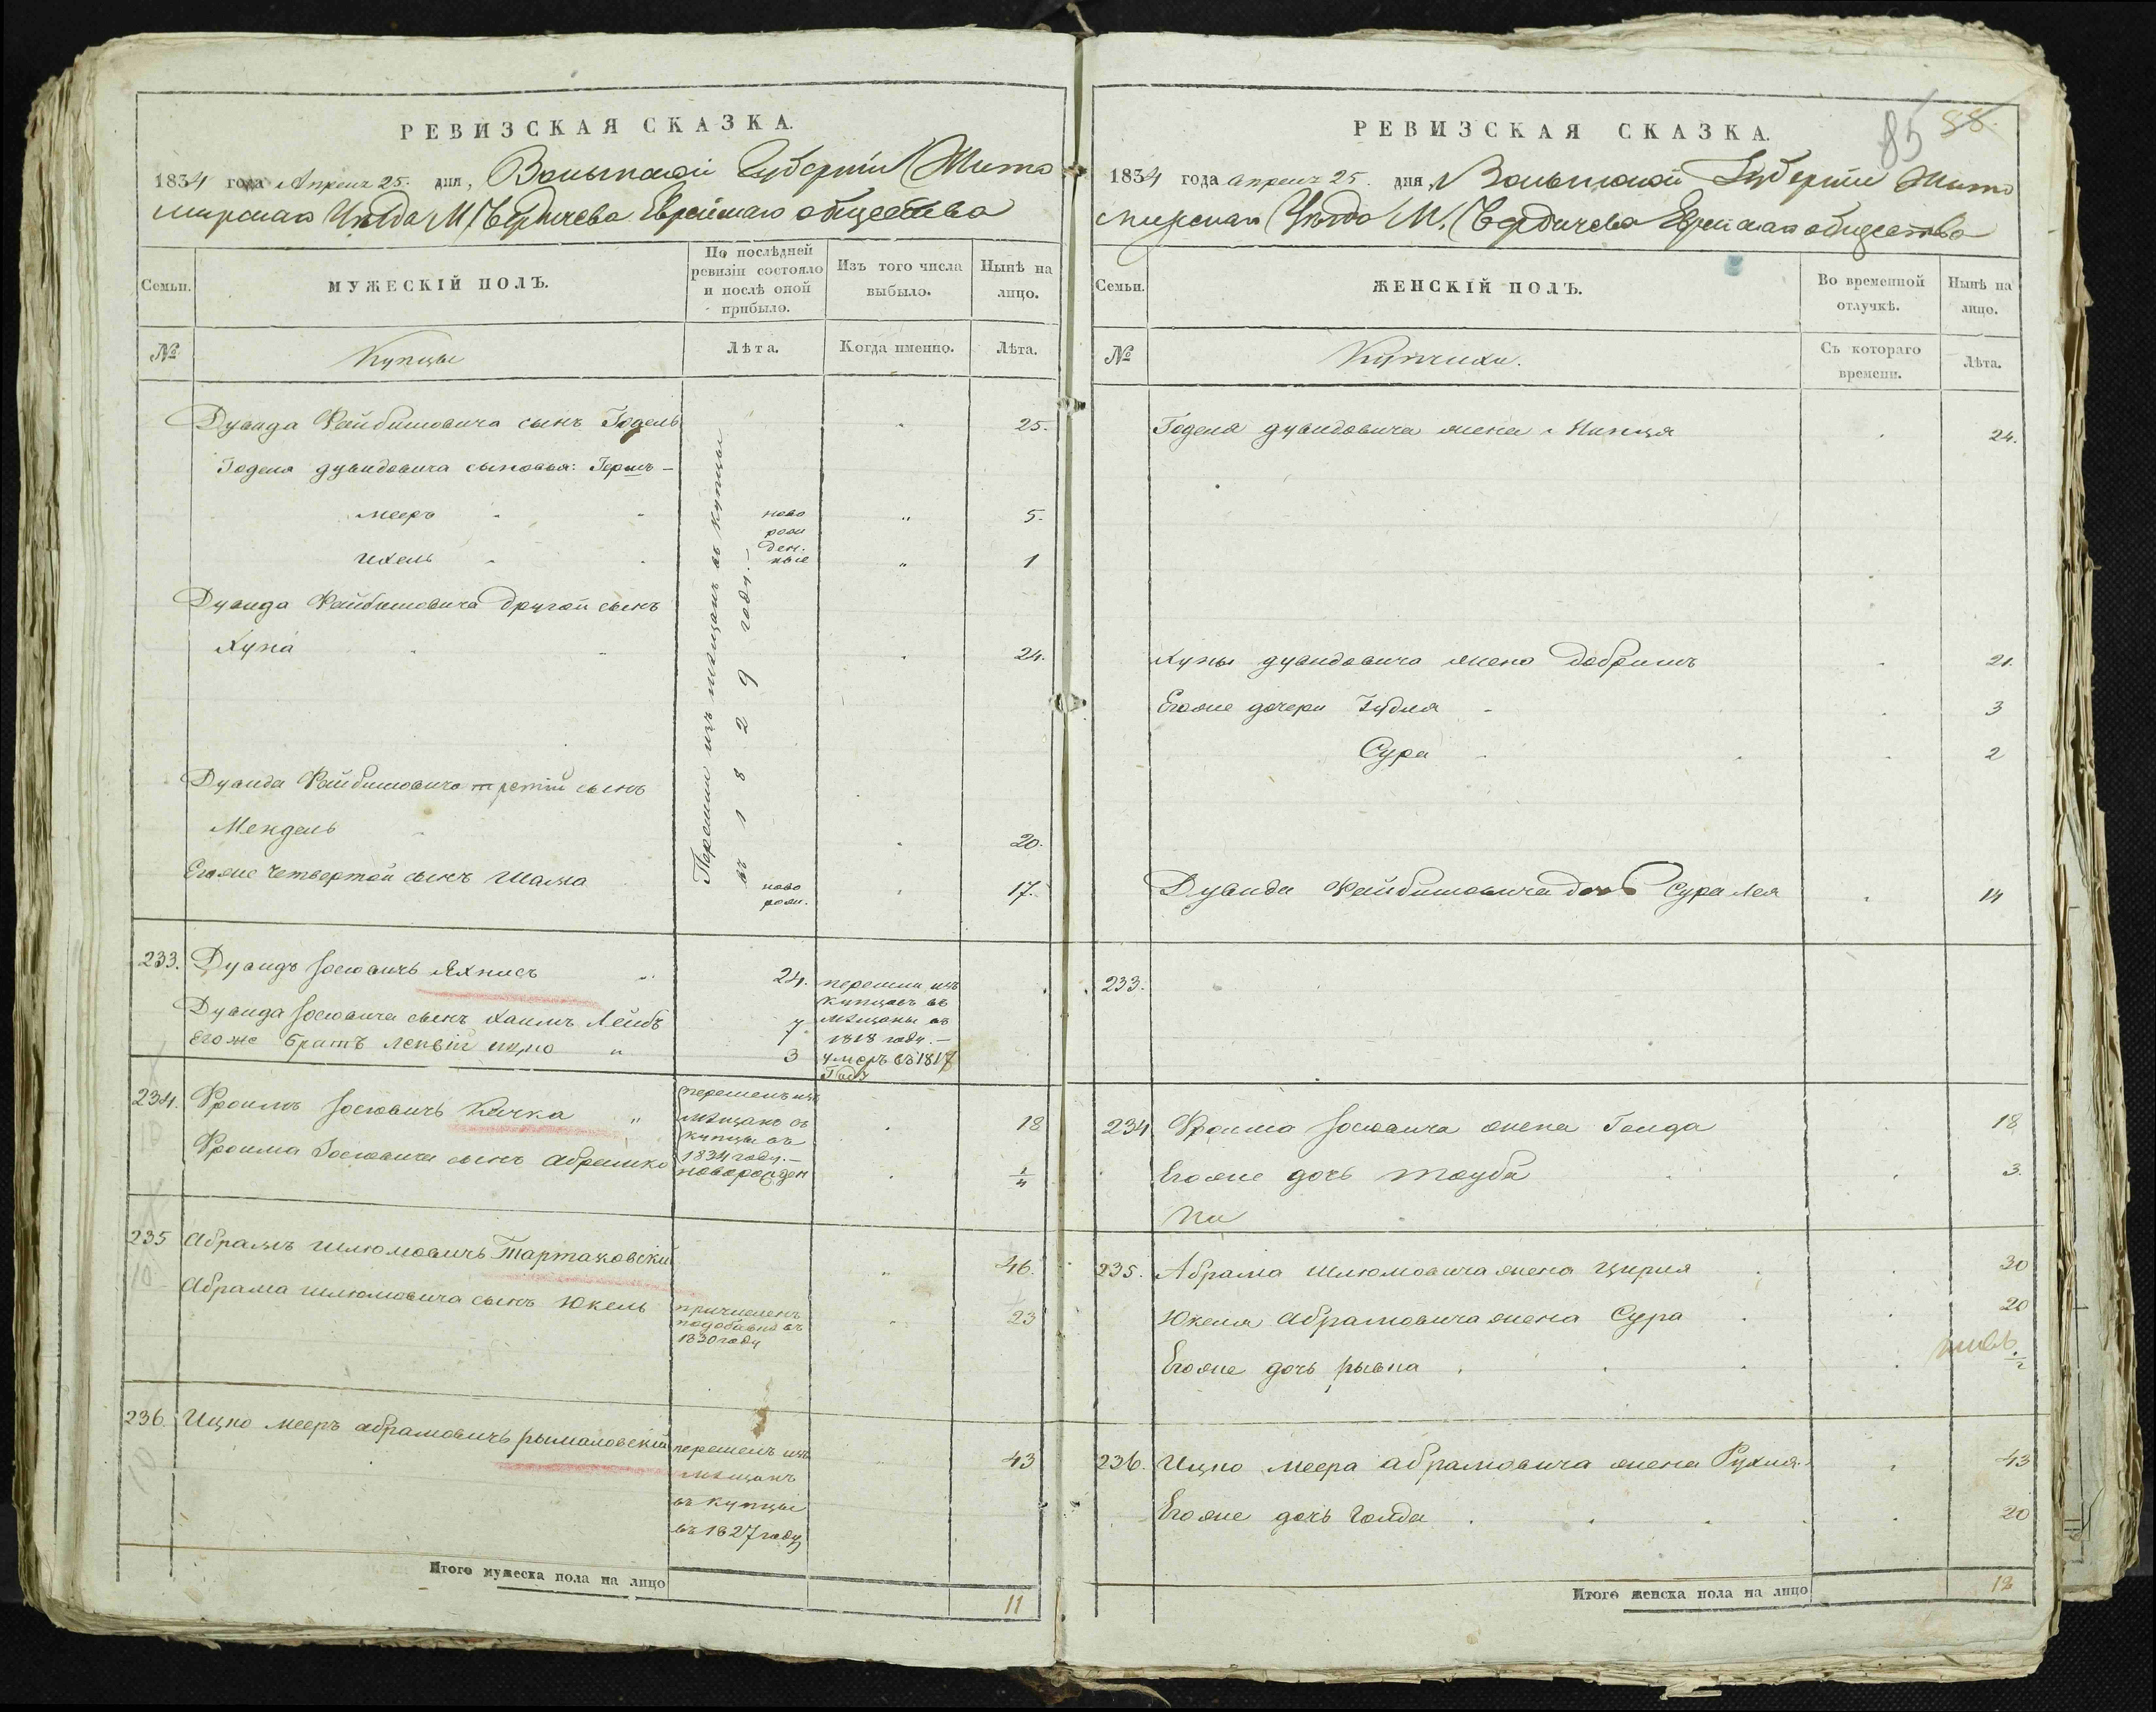 РЕВИЗСКАЯ СКАЗКА.
1834 года Апреля 25. дня, Волынской Губерніи Жито
мирскаго Уѣзда М. Бердичева Еврейскаго общества
Семьи.
МУЖЕСКІЙ ПОЛЪ.
По послѣдней
ревизіи состояло
и послѣ оной
прибыло.
Изъ того числа
выбыло.
Нынѣ на
лицо.
№
Купцы
Лѣта.
Когда именно.
Лѣта.
Перешли изъ мещанъ въ купцы
въ 1829 году.—
Дувида Файбишовича сынъ Годель 25.
Годеля дувидовича сыновья: Гершъ –
мееръ ново рож ден. ные 5.
Ихель 1
Дувида Файбишовича другой сынъ
Хуна 24.
Дувида Файбишовича третій сынъ
Мендель 20.
Егоже четвертой сынъ Шама ново рож. 17.
233. Дувидъ Іосіовичъ Яхнисъ 24. перешли изъ
купцовъ въ
Дувида Іосіовича сынъ Хаимъ Лейбъ 7 мѣщаны въ
1818 году.—
Егоже братъ Ицко 3 умеръ въ 1817
Году
234. Фроимъ Іосіовичъ Кичка перешелъ изъ
мѣщанъ въ
купцы въ
1834 году.— 18
Фроима Іосіовича сынъ Абрамко новорожден 1/4
235 Абрамъ Шлюмовичъ Тартаковскій 46.
Абрама шлюмовича сынъ Юкель причисленъ
подобавке въ
1830 году 23
236. Ицко мееръ абрамовичъ рымаловскій перешелъ изъ
мѣщанъ
въ купцы
въ 1827 году 43
Итого мужеска пола на лицо 11
85 88.
РЕВИЗСКАЯ СКАЗКА.
1834 года апреля 25. дня, Волынской Губерніи Жито
мирскаго Уѣзда М. Бердичева Еврейскаго общества
Семьи.
ЖЕНСКІЙ ПОЛЪ.
Во временной
отлучкѣ.
Нынѣ на
лицо.
№
Купчихи.
Съ котораго
времени.
Лѣта.
Годеля дувидовича жена 24.
Хуны дувидовича жена Добришъ 21.
Егоже дочери Гудля 3
Сура 2
Дувида Файбишовича дочь Сура Лея 14
233.
234 Фроима Іосіовича жена Голда 18
Егоже дочь Тауба 3.
235. Абрама шлюмовича жена Цирля 30
Юкеля абрамовича жена Сура 20
Егоже дочь рывка 1/2
236. Ицко меера абрамовича жена Рухля 43
Егоже дочь Голда 20
Итого женска пола на лицо 12